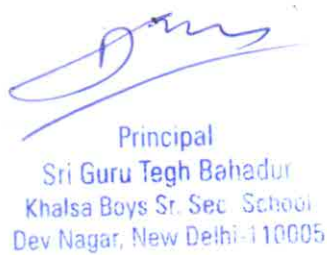 Principal
Sri Guru Tegh Bahadur
Khalsa Boys Sr. Sec. School
Dev Nagar, New Delhi-110005